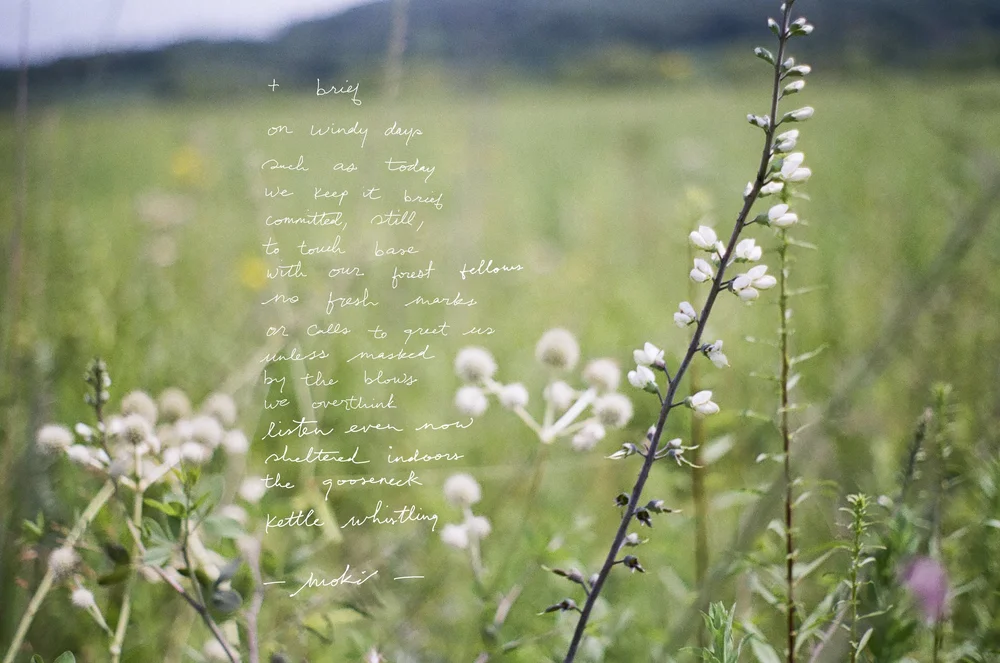 + brief
on windy days
such as today
we keep it brief
committed, still,
to touch base
with our forest fellows
no fresh marks
or calls to greet us
unless masked
by the blows
we overthink
listen even now
sheltered indoors
the gooseneck
kettle whistling
— moki —